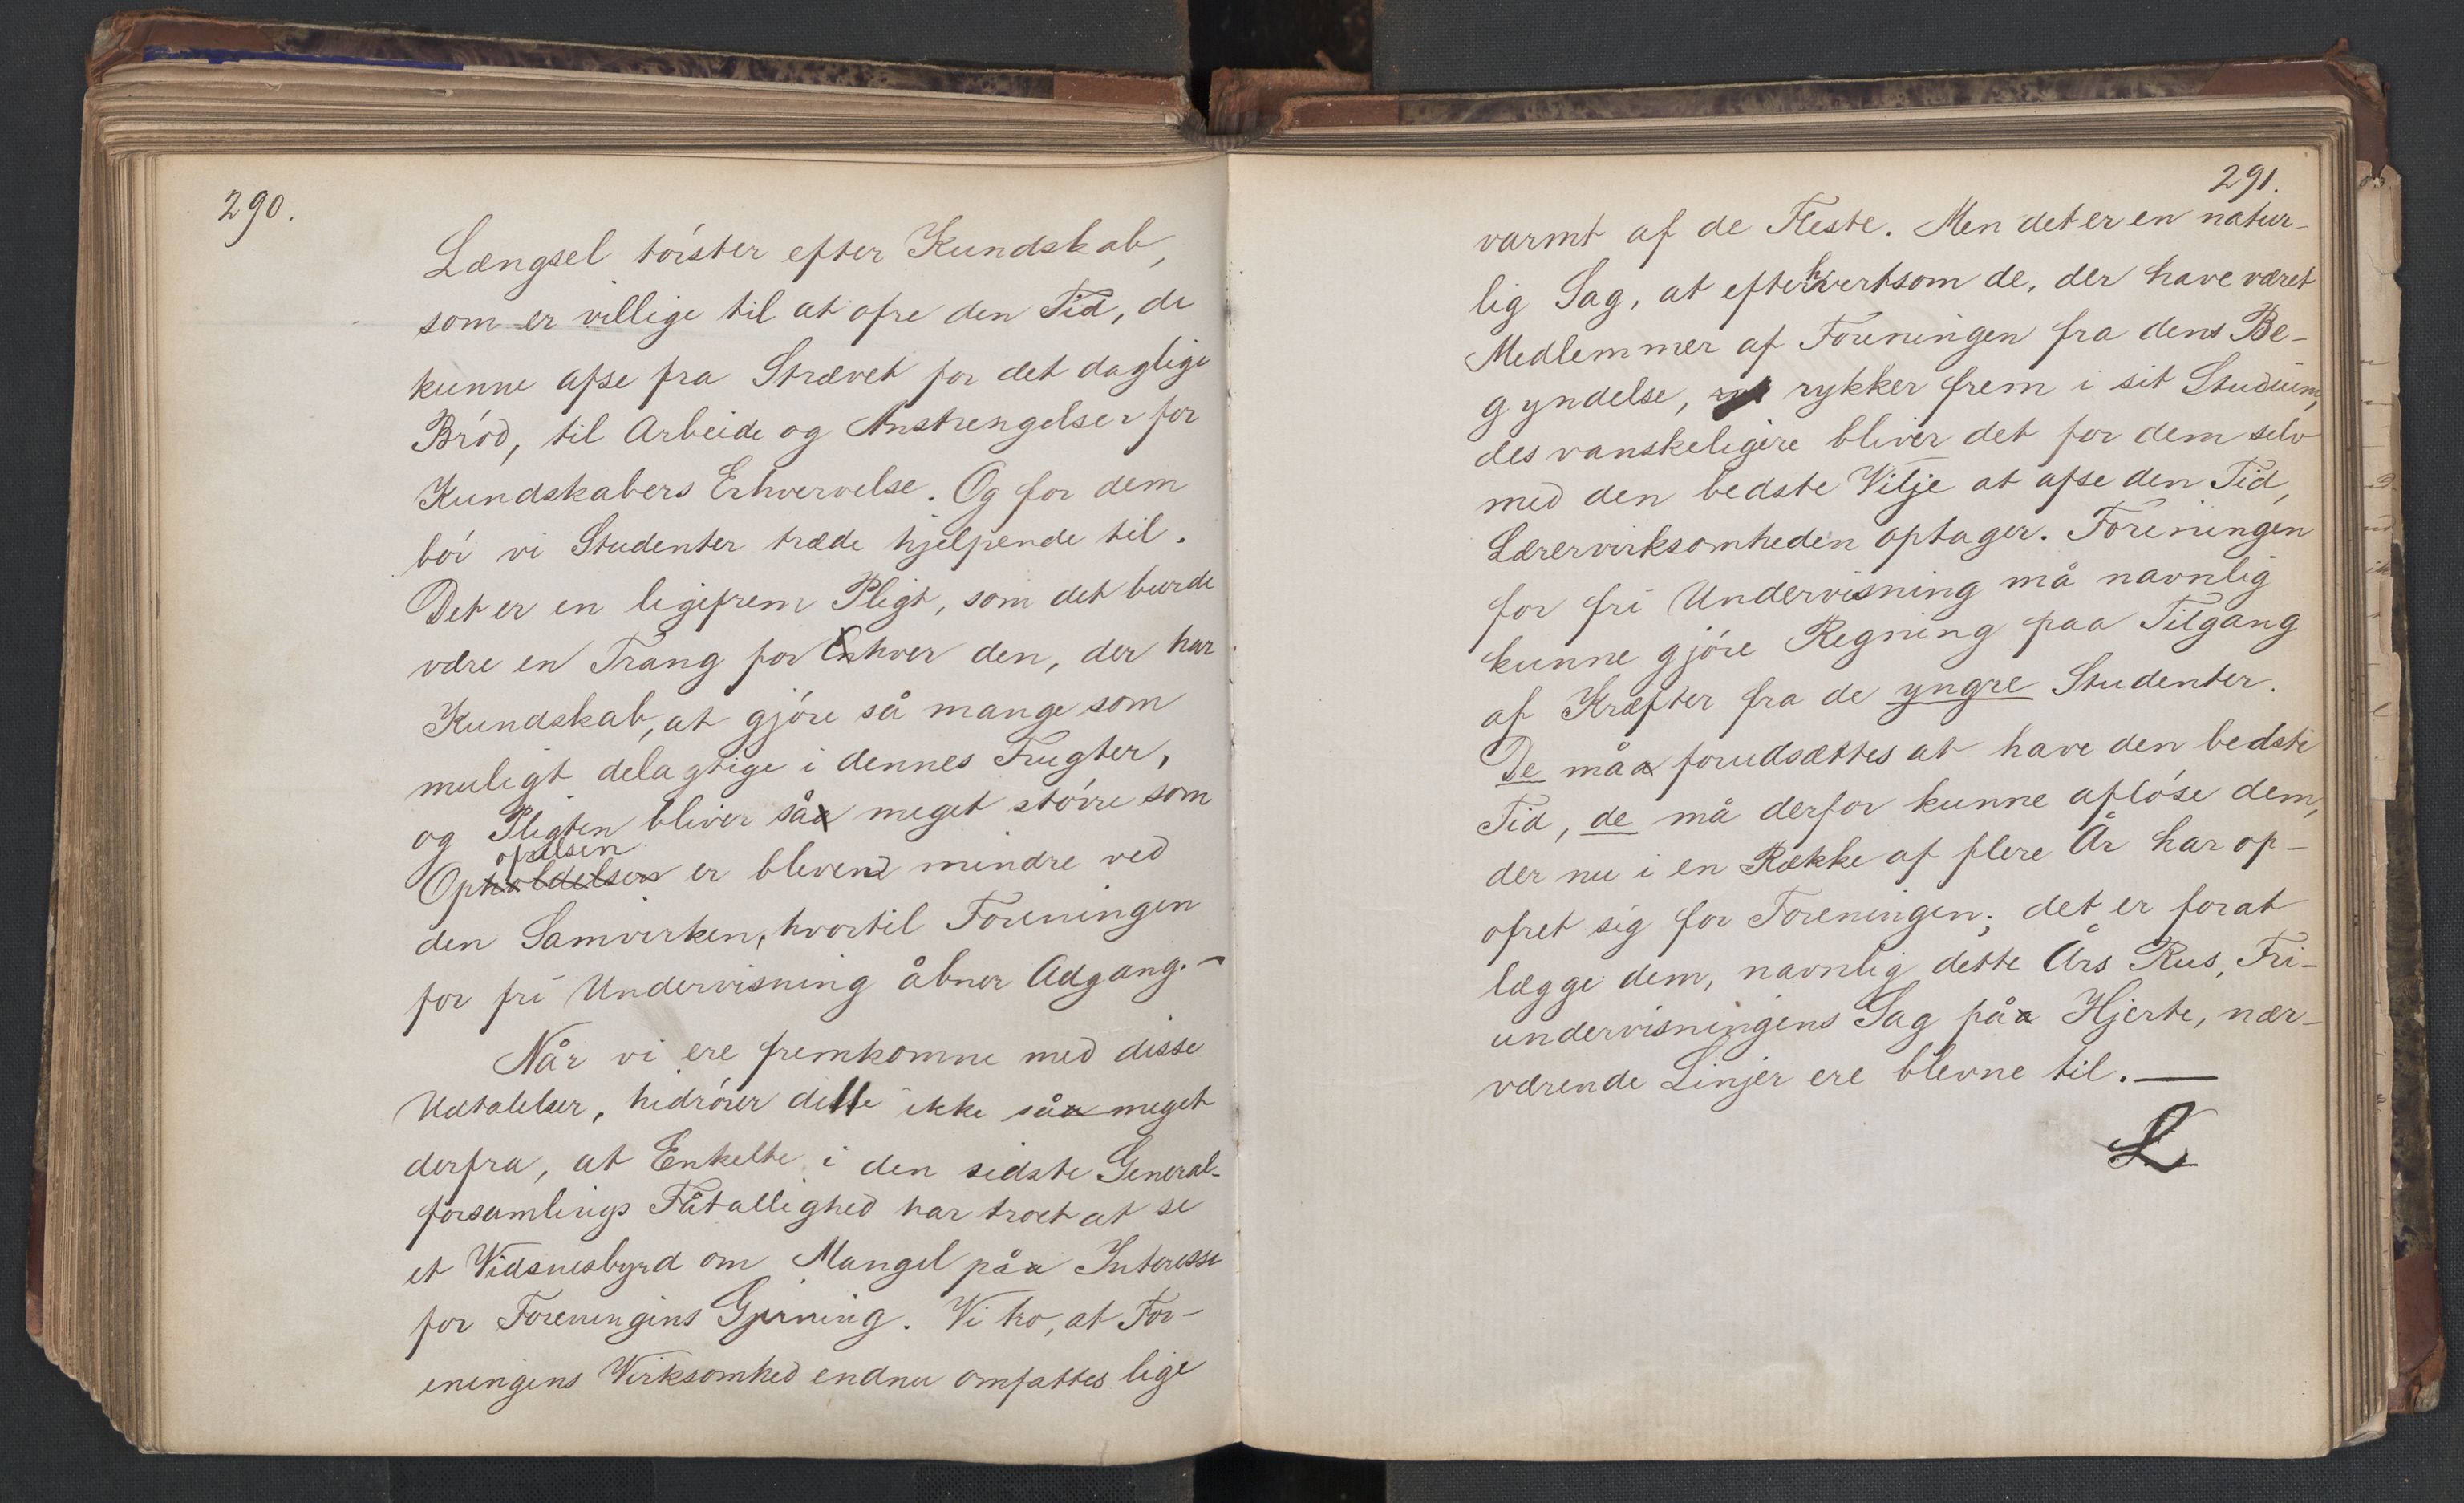 290.
Længsel törster efter Kundskab,
som er villige til at ofre den Tid, de
kunne afse fra Strævet for det daglige
Bröd, til Arbeide og Anstrengelser for
Kundskabers Erhvervelse. Og for dem
bör vi Studenter træde hjelpende til.
Det er en ligefrem Pligt, som det burde
være en Trang for Enhver den, der har
Kundskab, at gjöre så mange som
muligt delagtige i dennes Frugter,
og Pligten bliver såa meget större som
ofrelsen
Opholdelsen er blevend mindre ved
den Samvirken, hvortil Foreningen
for fri Undervisning åbner Adgang. –
Når vi ere fremkomne med disse
Udtalelser, hidrörer dette ikke såa meget
derfra, at Enkelte i den sidste General-
forsamlings Fåtallighed har troet at se
et Vidsnesbyrd om Mangel påa Interesse
for Foreningens Gjerning. Vi tro, at For-
eningens Virksomhed endnu omfattes lige
291.
varmt af de Fleste. Men det er en natur-
lig Sag, at efterhvertsom de, der have været
Medlemmer af Foreningen fra dens Be-
gyndelse, rykker frem i sit Studium,
des vanskeligere bliver det for dem selv
med den bedste Vilje at afse den Tid,
Lærervirksomheden optager. Foreningen
for fri Undervisning må navnlig
kunne gjöre Regning paa Tilgang
af Kræfter fra de yngre Studenter.
De måa forudsættes at have den bedste
Tid, de må derfor kunne aflöse dem,
der nu i en Række af flere År har op-
ofret sig for Foreningen; det er forat
lægge dem, navnlig dette Års Rus, Fri-
undervisningens Sag påa Hjerte, nær-
værende Linjer ere blevne til. —
L